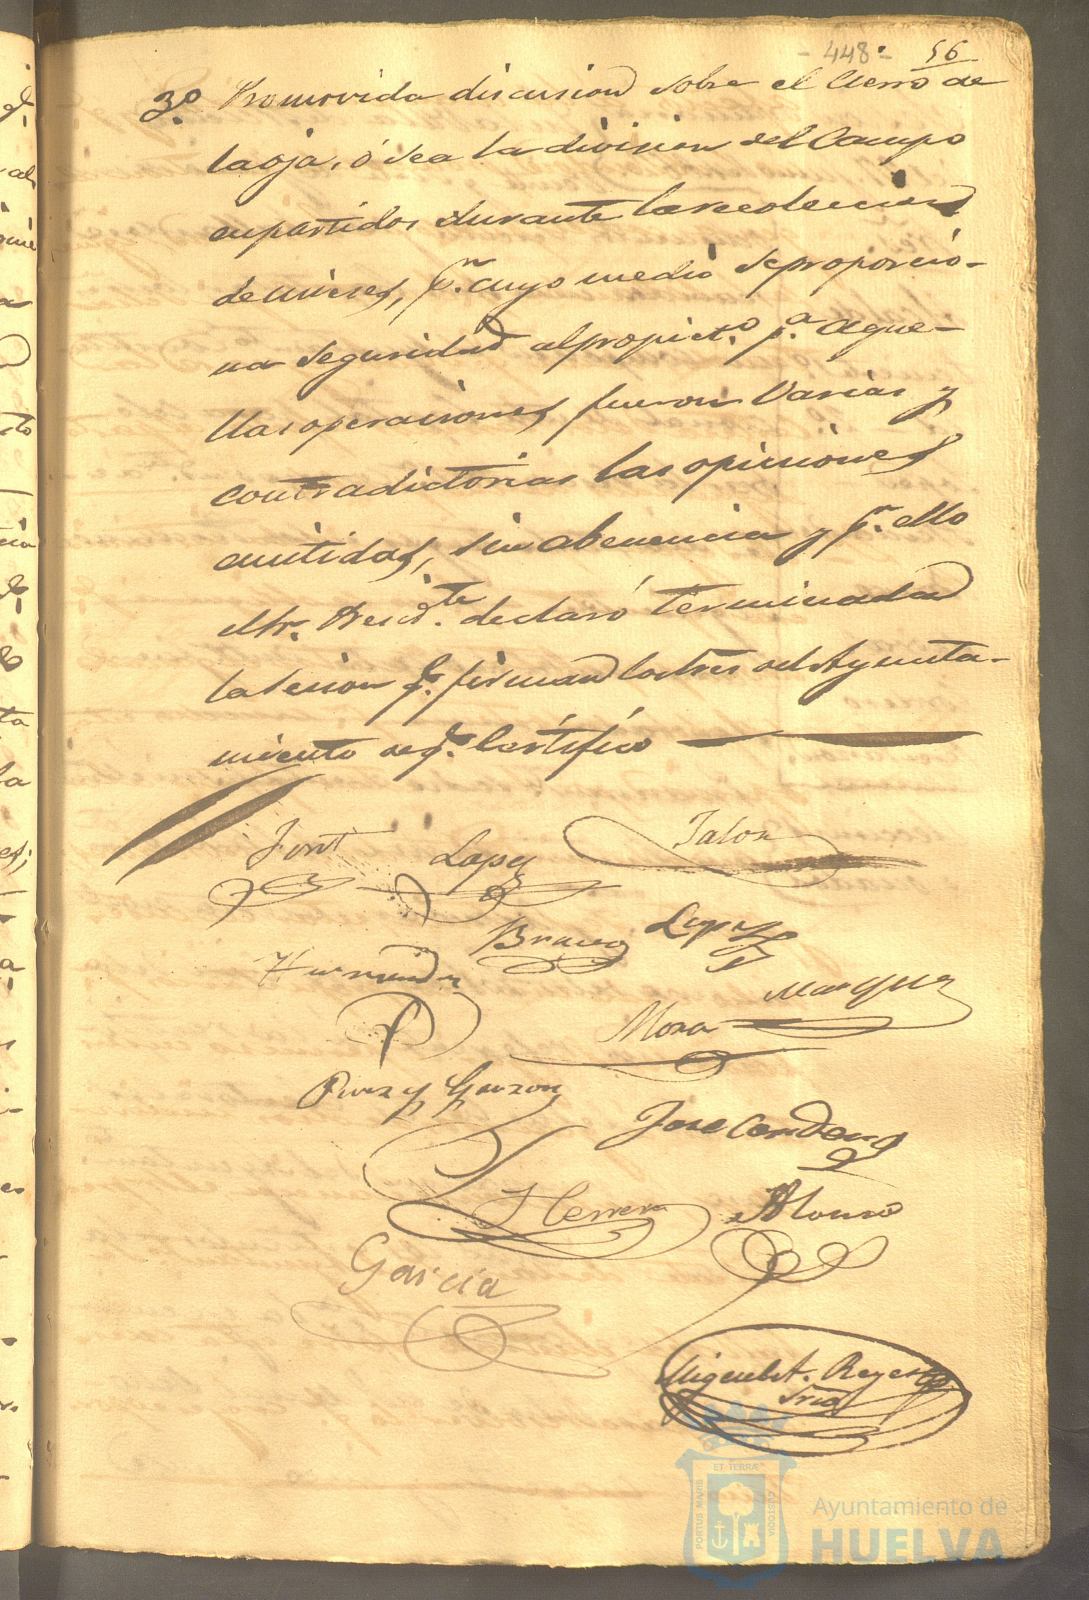 - 448 - 56
3º Promovida discusion sobre el cierro de
la oja, ó sea la division del Campo
en partidos durante la recoleccion
de mieses, p.r cuyo medio se proporcio-
na seguridad al propiet.o p.a aque-
llas operaciones, fueron varias y
contradictorias las opiniones
emitidas, sin abenencia y p.r ello
el Sr. Presid.te declaró terminada
la sesion q.e firman los Sres del Ayunta-
miento de q.e Certifico
Font Lopez Jalon
Hernandez Bravo Lopez
Mora Marquez
Perez y Garzon
Jose Cordero
Herrera Alonso
Garcia
Miguel A. Reyes
Srio
PORTUS MARIS ET TERRÆ CUSTODIA
Ayuntamiento de
HUELVA